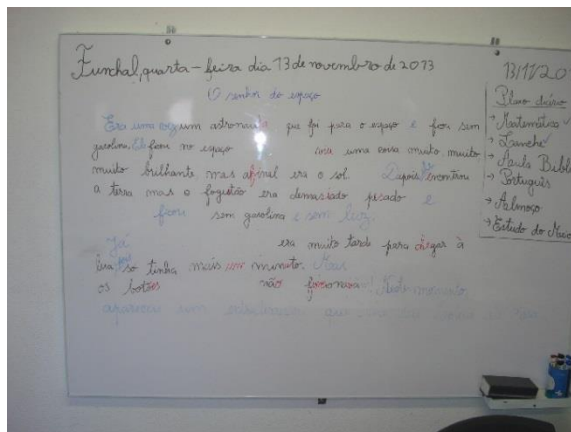 Funchal, quarta-feira dia 13 de novembro de 2013
O senhor do espaço
Era uma vez um astronauta que foi para o espaço e ficou sem
gasolina. Ele ficou no espaço uma coisa muito muito
muito brilhante mas afinal era o sol. Depois encontrou
a terra mas o foguetão era demasiado pesado e
ficou sem gasolina e sem luz.
Já era muito tarde para chegar à
só tinha mais um minuto. Mas
os botões não funcionavam! Neste momento
apareceu um que
13/11/20
Plano diário
→ Matemática ✓
→ Lanche ✓
→ Aula Bibl
→ Português
→ Almoço
→ Estudo do Meio